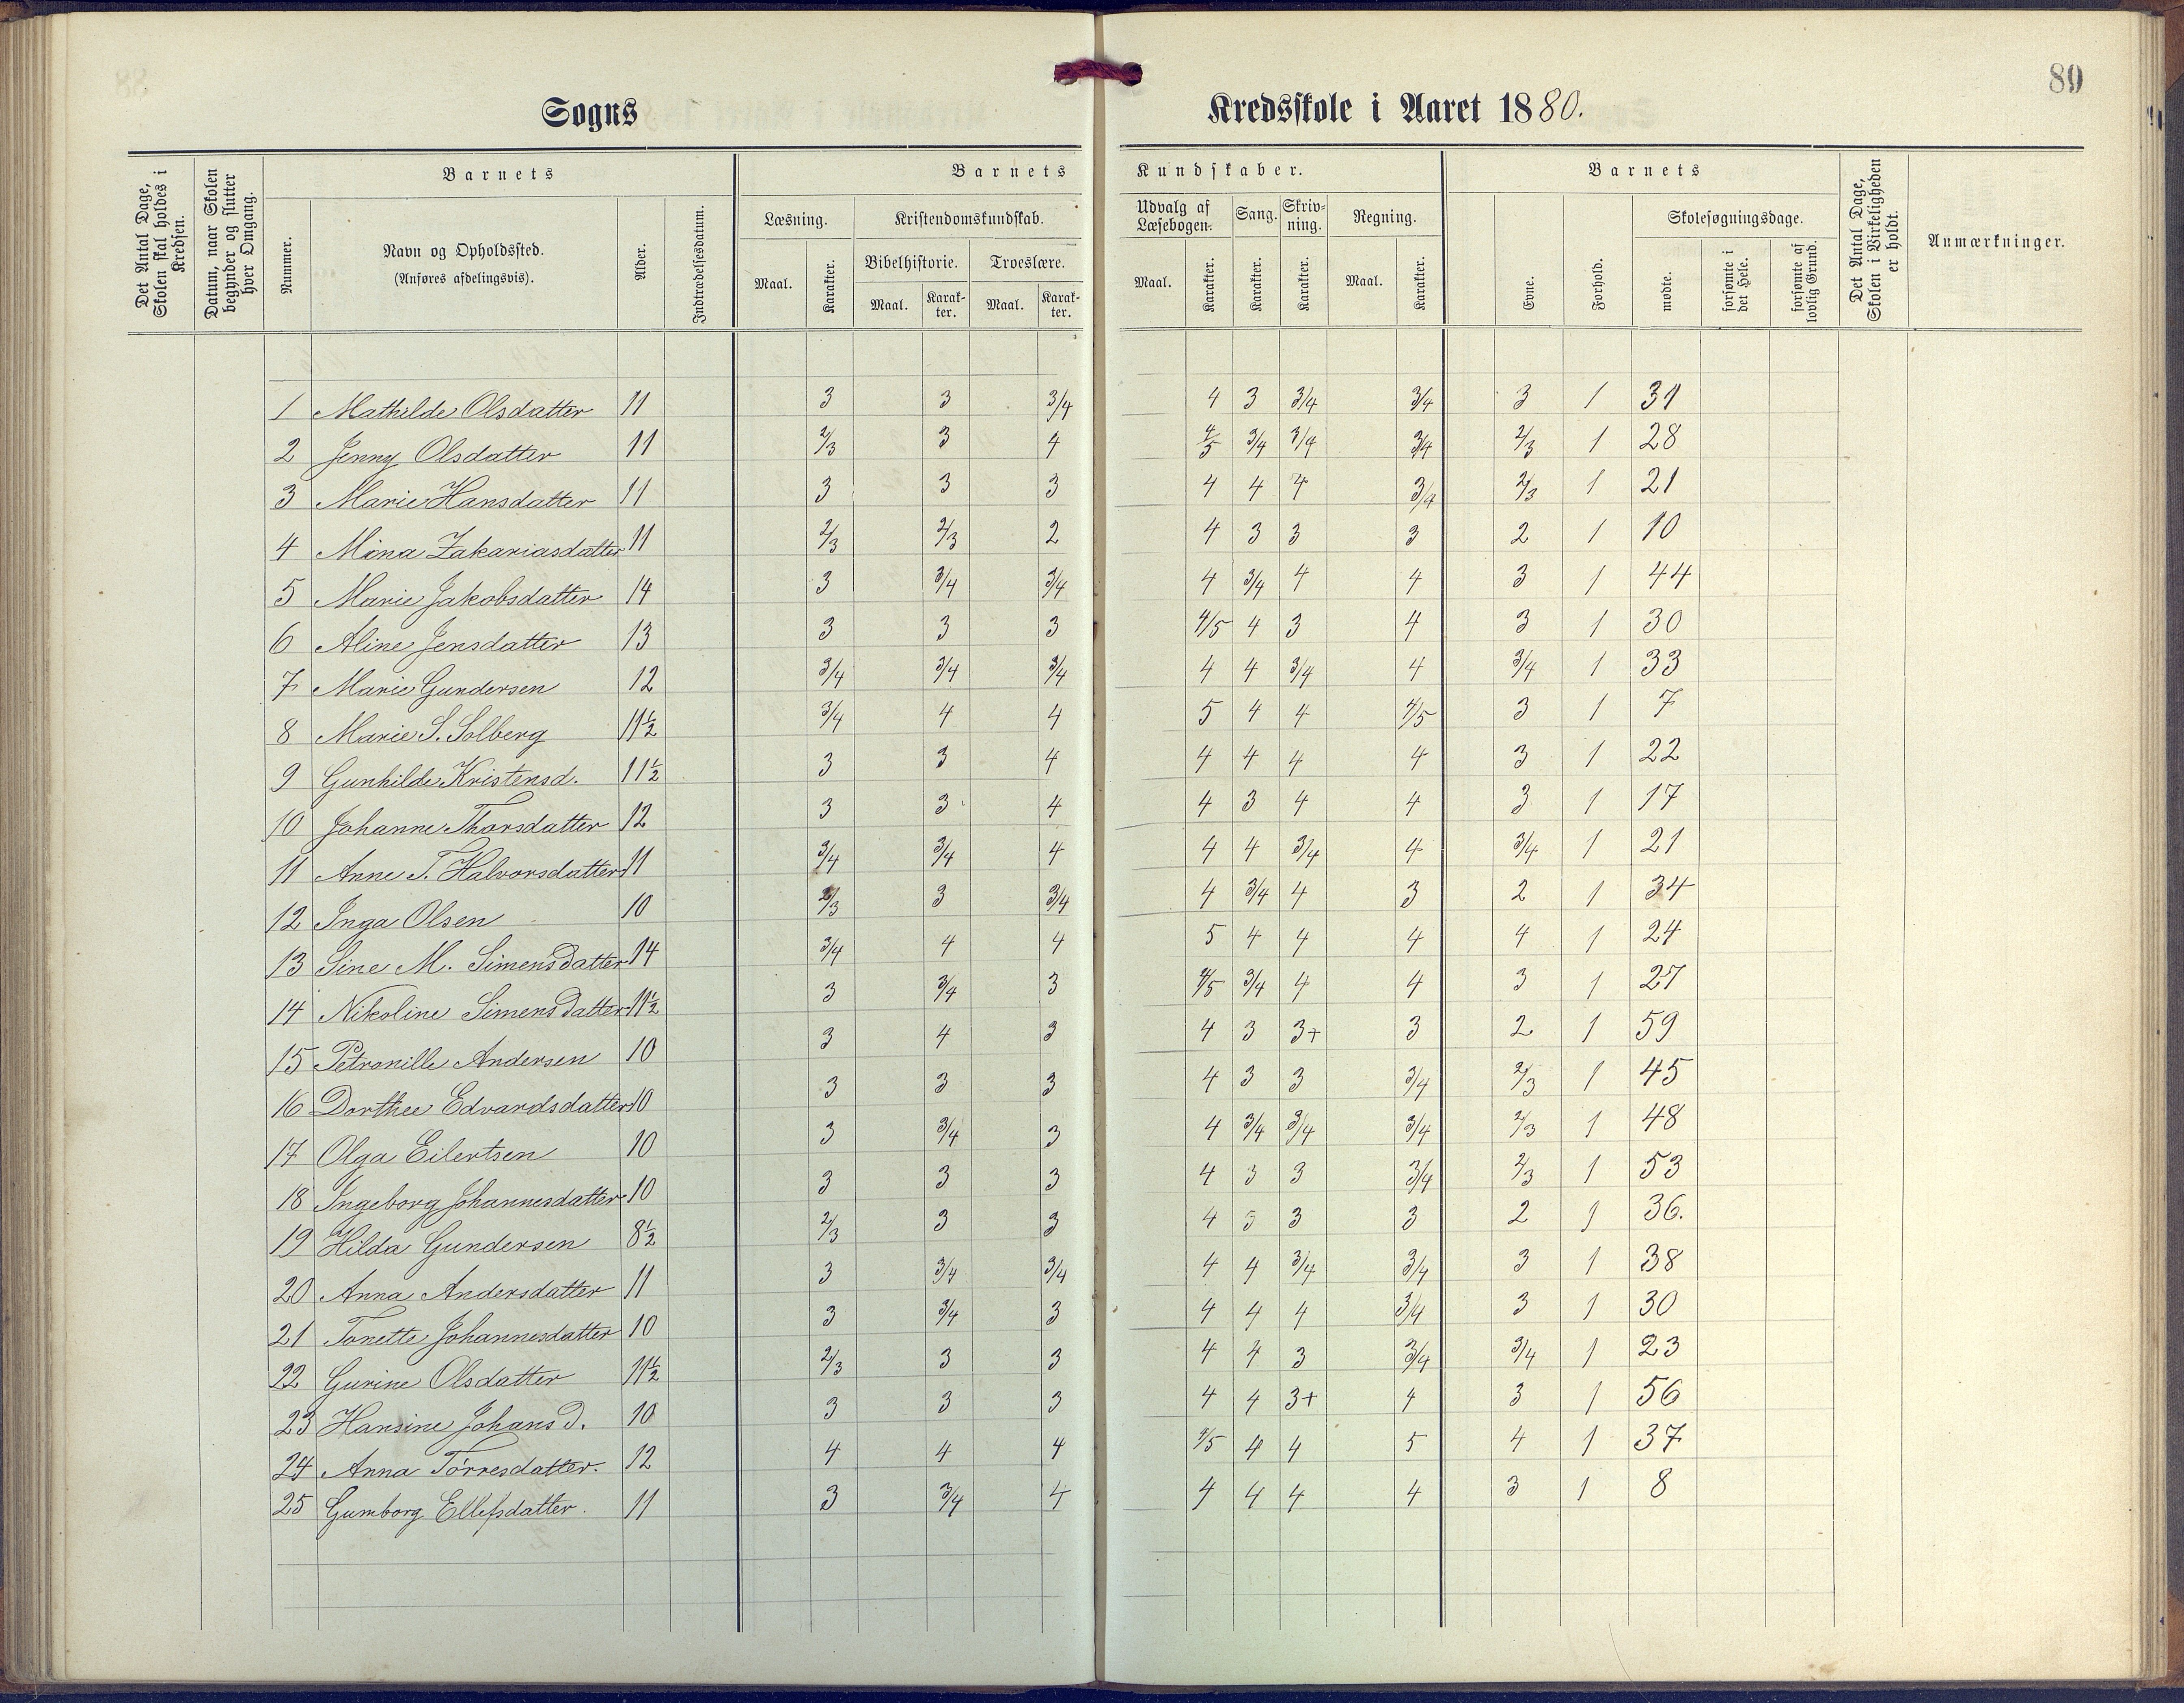 89
Sogns Kredsskole i Aaret 1880.
Det Antal Dage, Skolen skal holdes i Kredsen.
Datum, naar Skolen begynder og slutter hver Omgang.
Barnets
Nummer.
Navn og Opholdssted.
(Anføres afdelingsvis).
Alder.
Indtrædelsesdatum.
Barnets Kundskaber.
Læsning.
Maal. Karakter.
Kristendomskundskab.
Bibelhistorie. Troeslære.
Maal. Karakter. Maal. Karakter.
Udvalg af Læsebogen.
Maal. Karakter.
Sang.
Karakter.
Skrivning.
Karakter.
Regning.
Maal. Karakter.
Barnets
Evne. Forhold.
Skolesøgningsdage.
mødte. forsømte i det Hele. forsømte af lovlig Grund.
Det Antal Dage, Skolen i Virkeligheden er holdt.
Anmærkninger.
1 Mathilde Olsdatter 11 3 3 3/4 4 3 3/4 3/4 3 1 31
2 Jenny Olsdatter 11 2/3 3 4 4/5 3/4 3/4 3/4 2/3 1 28
3 Marie Hansdatter 11 3 3 3 4 4 4 3/4 2/3 1 21
4 Mina Zakariasdatter 11 2/3 2/3 2 4 3 3 3 2 1 10
5 Marie Jakobsdatter 14 3 3/4 3/4 4 3/4 4 4 3 1 44
6 Aline Jensdatter 13 3 3 3 4/5 4 3 4 3 1 30
7 Marie Gundersen 12 3/4 3/4 3/4 4 4 3/4 4 3/4 1 33
8 Marie S. Solberg 11½ 3/4 4 4 5 4 4 4/5 3 1 7
9 Gunhilde Kristensd. 11½ 3 3 4 4 4 4 4 3 1 22
10 Johanne Thorsdatter 12 3 3 4 4 3 4 4 3 1 17
11 Anne T. Halvorsdatter 11 3/4 3/4 4 4 4 3/4 4 3/4 1 21
12 Inga Olsen 10 2/3 3 3/4 4 3/4 4 3 2 1 34
13 Sine M. Simensdatter 14 3/4 4 4 5 4 4 4 4 1 24
14 Nikoline Simensdatter 11½ 3 3/4 3 4/5 3/4 4 4 3 1 27
15 Petronille Andersen 10 3 4 3 4 3 3+ 3 2 1 59
16 Dorthee Edvardsdatter 10 3 3 3 4 3 3 3/4 2/3 1 45
17 Olga Eilertsen 10 3 3/4 3 4 3/4 3/4 3/4 2/3 1 48
18 Ingeborg Johannesdatter 10 3 3 3 4 3 3 3/4 2/3 1 53
19 Hilda Gundersen 8½ 2/3 3 3 4 3 3 3 2 1 36.
20 Anna Andersdatter 11 3 3/4 3/4 4 4 3/4 3/4 3 1 38
21 Tonette Johannesdatter 10 3 3/4 3 4 4 4 3/4 3 1 30
22 Gurine Olsdatter 11½ 2/3 3 3 4 4 3 3/4 3/4 1 23
23 Hansine Johansd. 10 3 3 3 4 4 3+ 4 3 1 56
24 Anna Tørresdatter. 12 4 4 4 4/5 4 4 5 4 1 37
25 Gumborg Ellefsdatter. 11 3 3/4 4 4 4 4 4 3 1 8